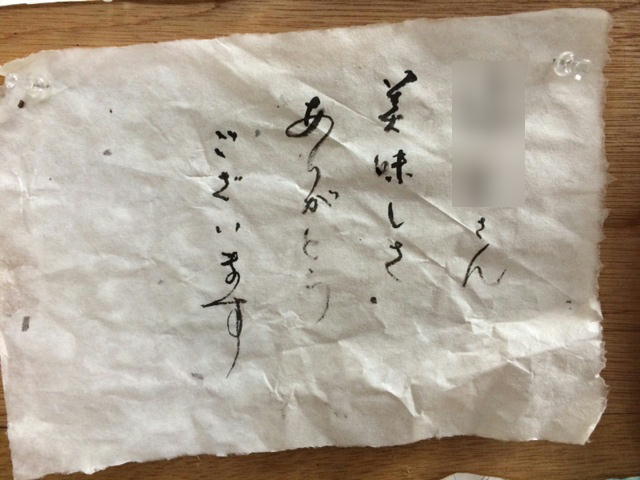 さん
美味しさ
ありがとう
ございます